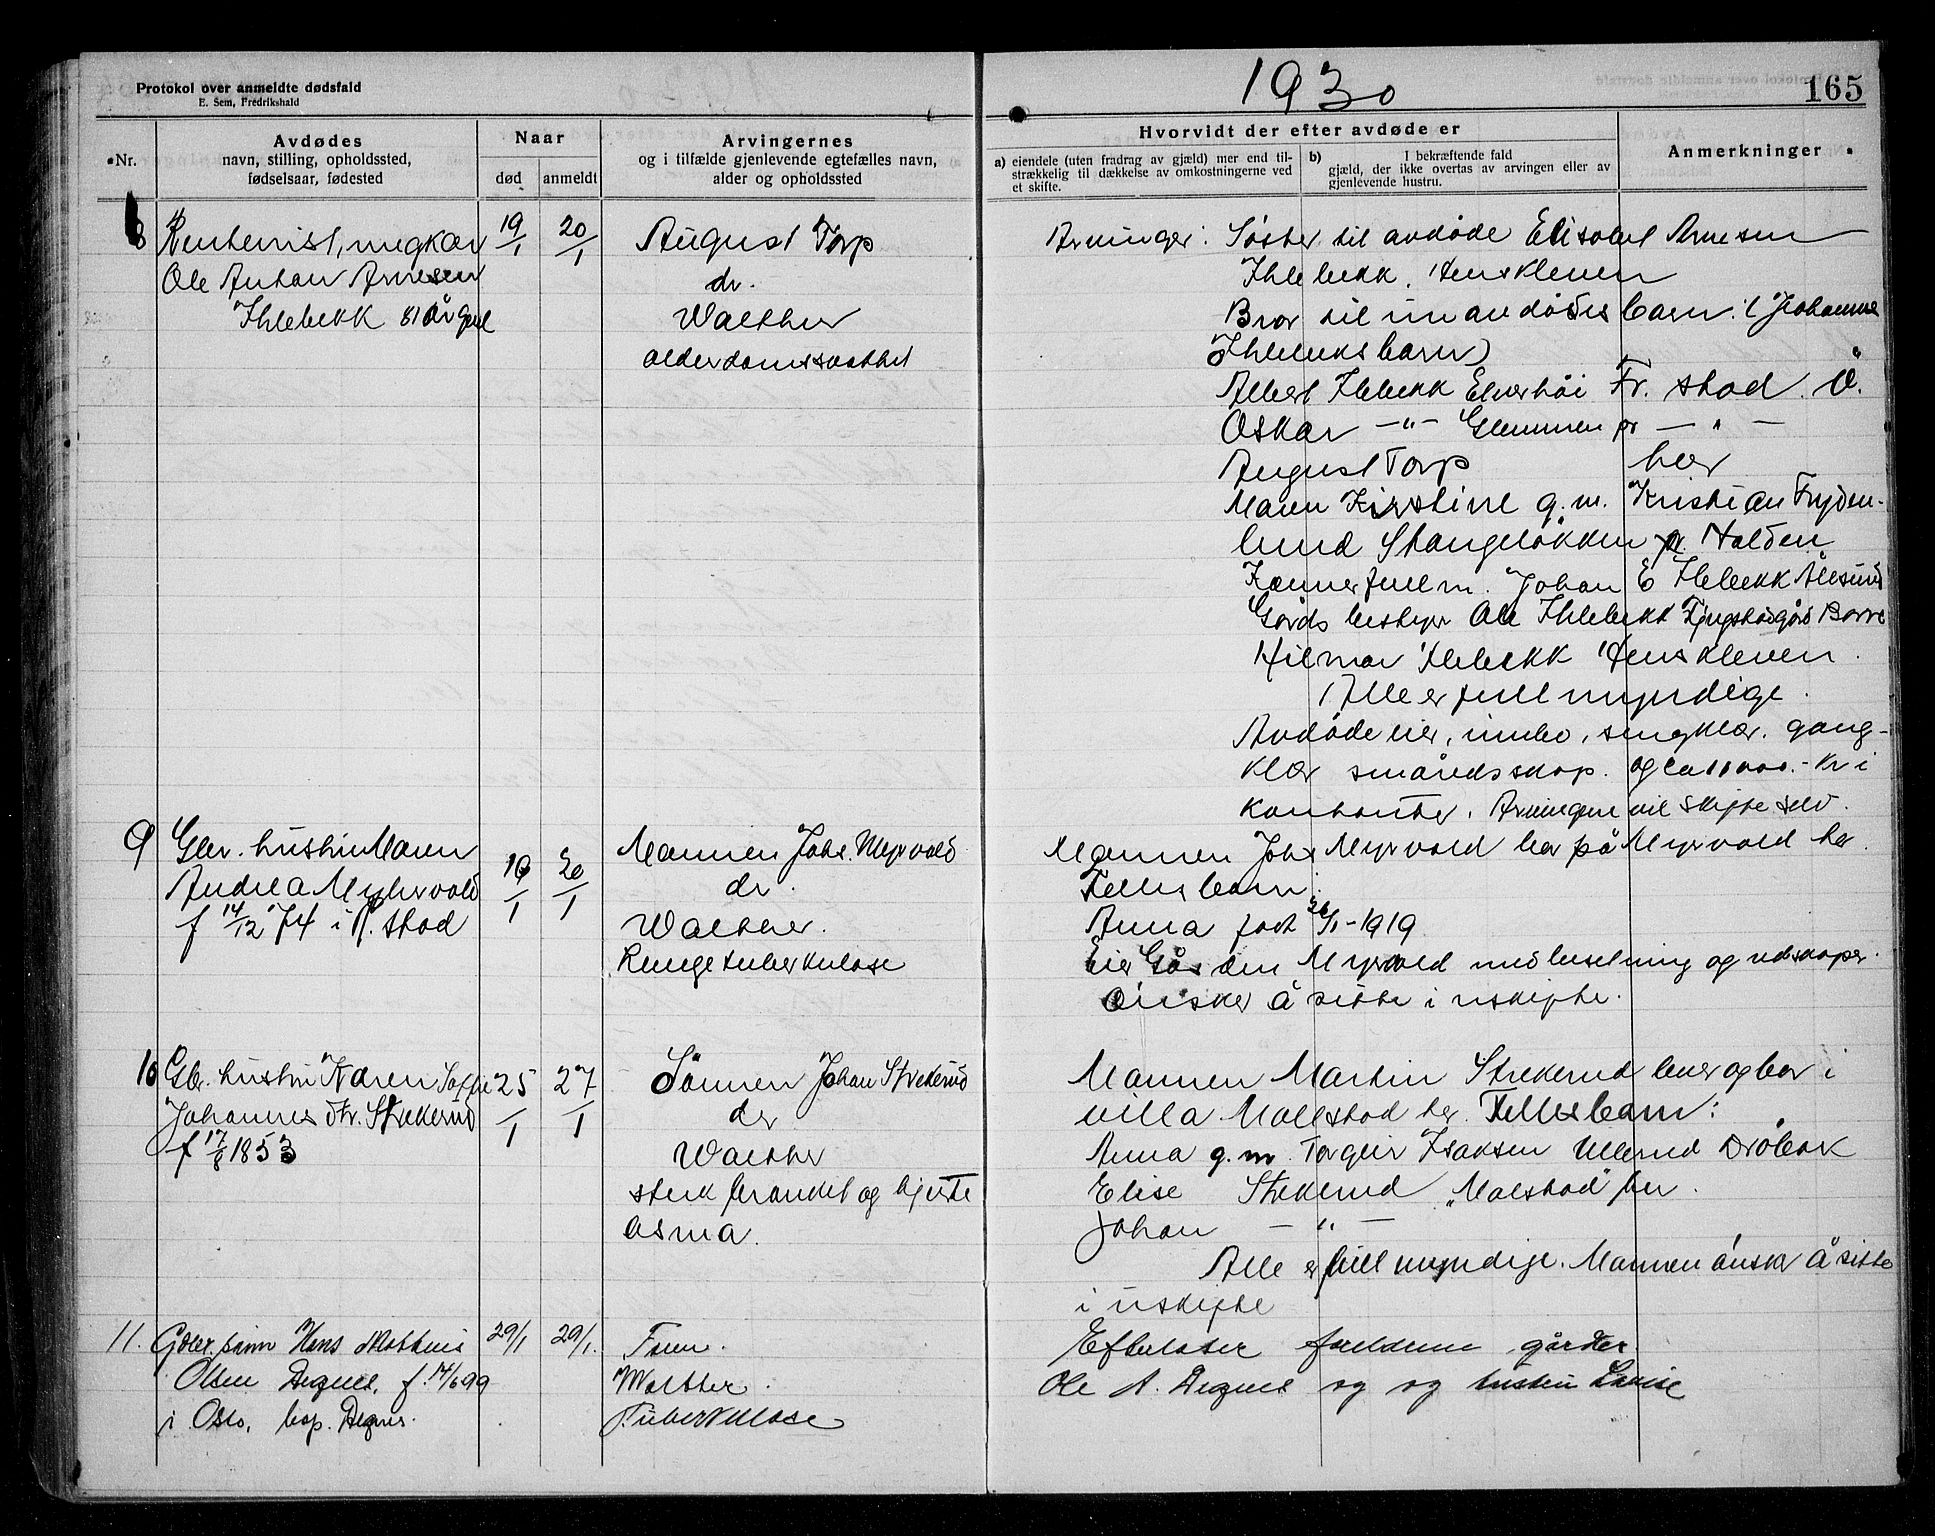 Protokol over anmeldte dødsfald
E. Sem, Fredrikshald
1930
165
Nr.
Avdødes
navn, stilling, opholdssted,
fødselsaar, fødested
Naar
død
anmeldt
Arvingernes
og i tilfælde gjenlevende egtefælles navn,
alder og opholdssted
Hvorvidt der efter avdøde er
a) eiendele (uten fradrag av gjæld) mer end til-
strækkelig til dækkelse av omkostningerne ved
et skifte.
b) I bekræftende fald
gjæld, der ikke overtas av arvingen eller av
gjenlevende hustru.
Anmerkninger
8
Rentenist, ungkar
Ole Anton Arnesen
Ihlebekk 81 år gml
19/1
20/1
August Torp
dr.
Walther
alderdomssvakhet
Arvinger: Søster til avdøde Elisabet Arnesen
Ihlebekk, Henskleven
Bror til avdødes barn: (Johannes
Ihlebeks barn)
Albert Ihlebekk Elverhöi Fr.stad. Ö.
Oskar -"- Glemmen pr -"-
August Torp her
Maren Kirstine g.m. Kristian Fryden-
lund Stangeløkken pr. Halden
Johan E Ihlebekk Ålesund
Gårds bestyr Ole Ihlebekk Borre
Hilmar Ihlebekk Henskleven.
Alle er fullmyndige.
Avdøde eier, innbo, sengklær. gang-
klær småredsskap. og ca 11000.- kr i
kontanter. Arvingene vil skifte selv.
9
Gbr. hustru Maren
Andrea Myhrvold
f 14/12 74 i Fr.stad
19/1
20/1
Mannen Johs. Myrvold
dr.
Walther.
Lungetuberkulose
Mannen Johs Myrvold bor på Myrvold her.
Felles barn:
Anna født 26/1-1919
Eier Gården Myrvold med besetning og redskaper.
Önsker å sitte i uskifte.
10
Gbr. hustru Karen Sofie
Johannesdtr. Strekerud
f 17/8 1853
25/1
27/1
Sönnen Johan Strekerud
dr
Walther
sterk bronkit og hjerte
asma.
Mannen Martin Strekerud lever og bor i
villa Molstad her. Felles barn:
Anna g.m. Torgeir Isaksen Ullerud Dröbak
Elise Strekerud "Molstad" her.
Johan -"-
Alle er fullmyndige. Mannen önsker å sitte
i uskifte
11.
Gbr. sønn Hans Matheus
Olsen Degnes, f. 14/6 99
i Oslo, bop. Degnes.
29/1
29/1.
Faren.
Walther.
Tuberkulose
Efterlater foreldrene gårdbr.
Ole A. Degnes og og hustru Lovise